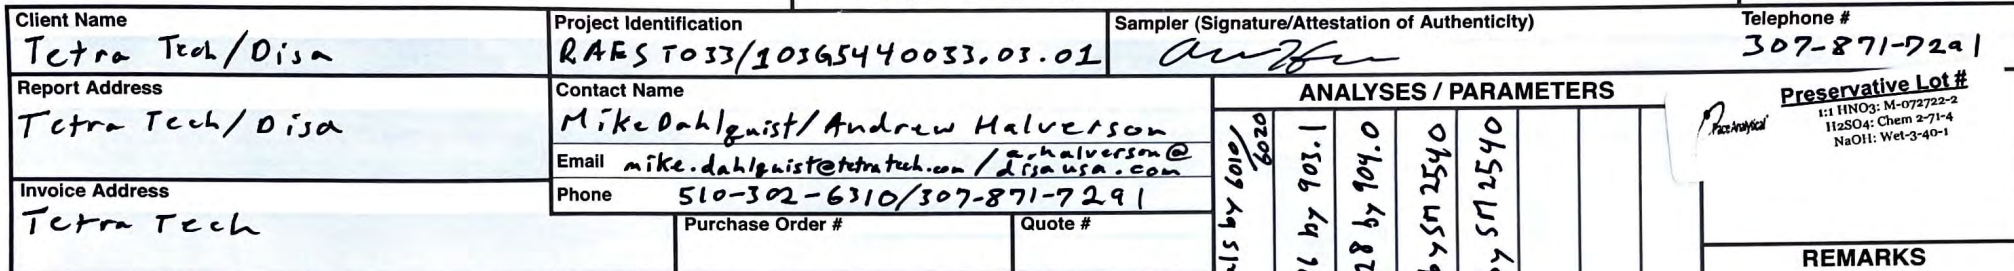 Client Name
Tetra Tech/Disa
Project Identification
RAES TO33/103G5440033.03.01
Sampler (Signature/Attestation of Authenticity)
Telephone #
307-871-7291
Report Address
Tetra Tech/Disa
Contact Name
Mike Dahlquist/Andrew Halverson
Email mike.dahlquist@tetratech.com / a.halverson@
disausa.com
Phone 510-302-6310/307-871-7291
Invoice Address
Tetra Tech
Purchase Order #
Quote #
ANALYSES / PARAMETERS
als by 6010/
6020
26 by 903.1
28 by 904.0
by SM 2540
by SM 2540
Pace Analytical
Preservative Lot #
1:1 HNO3: M-072722-2
H2SO4: Chem 2-71-4
NaOH: Wet-3-40-1
REMARKS